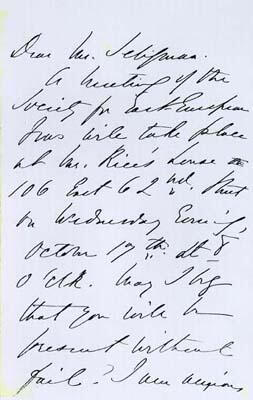 Dear Mr. Seligman.
A meeting of the
Society for East European
Jews will take place
at Mr. Rice's house
106 East 62nd. Street
on Wednesday Evening,
October 17th. at 8
O'Clk. May I beg
that you will be
present without
fail? I am anxious